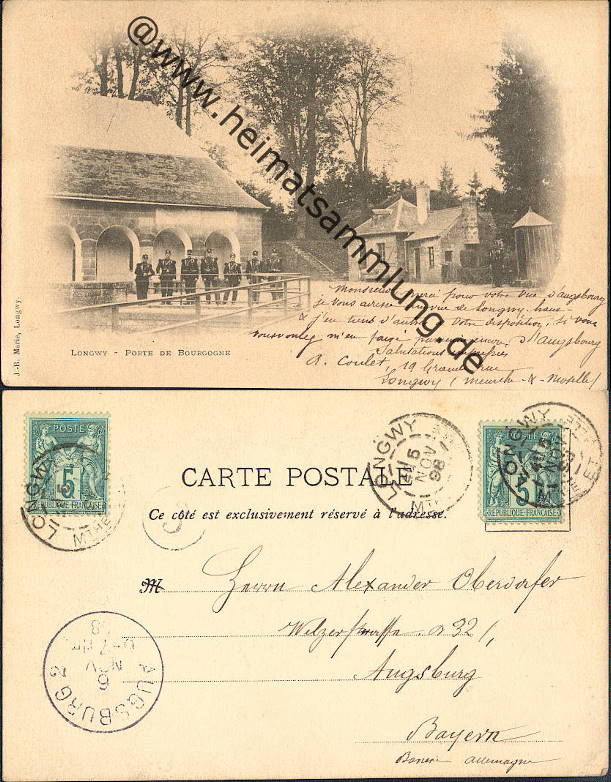 @www.heimatsammlung.de
J.-R. Marie, Longwy.
LONGWY - PORTE DE BOURGOGNE
Monsieur merci pour votre vue d'Augsbourg
je vous adresse vue de Longwy haut
& j'en tiens d'autres votre disposition, si vous
voulez m'en faire d'Augsbourg
Salutations
A. Coulet, 19 Grande rue
Longwy (Meurthe & Moselle)
POSTE
5
REPUBLIQUE FRANÇAISE
LONGWY
5
MTHE
LONGWY
5
NOV
98
LONGWY
5
REPUBLIQUE FRANÇAISE
CARTE POSTALE
Ce côté est exclusivement réservé à l'adresse.
M
Herrn Alexander Oberdorfer
Welzerstrasse 32/,
Augsburg
Bayern
allemagne
AUGSBURG 2
6
NOV
98